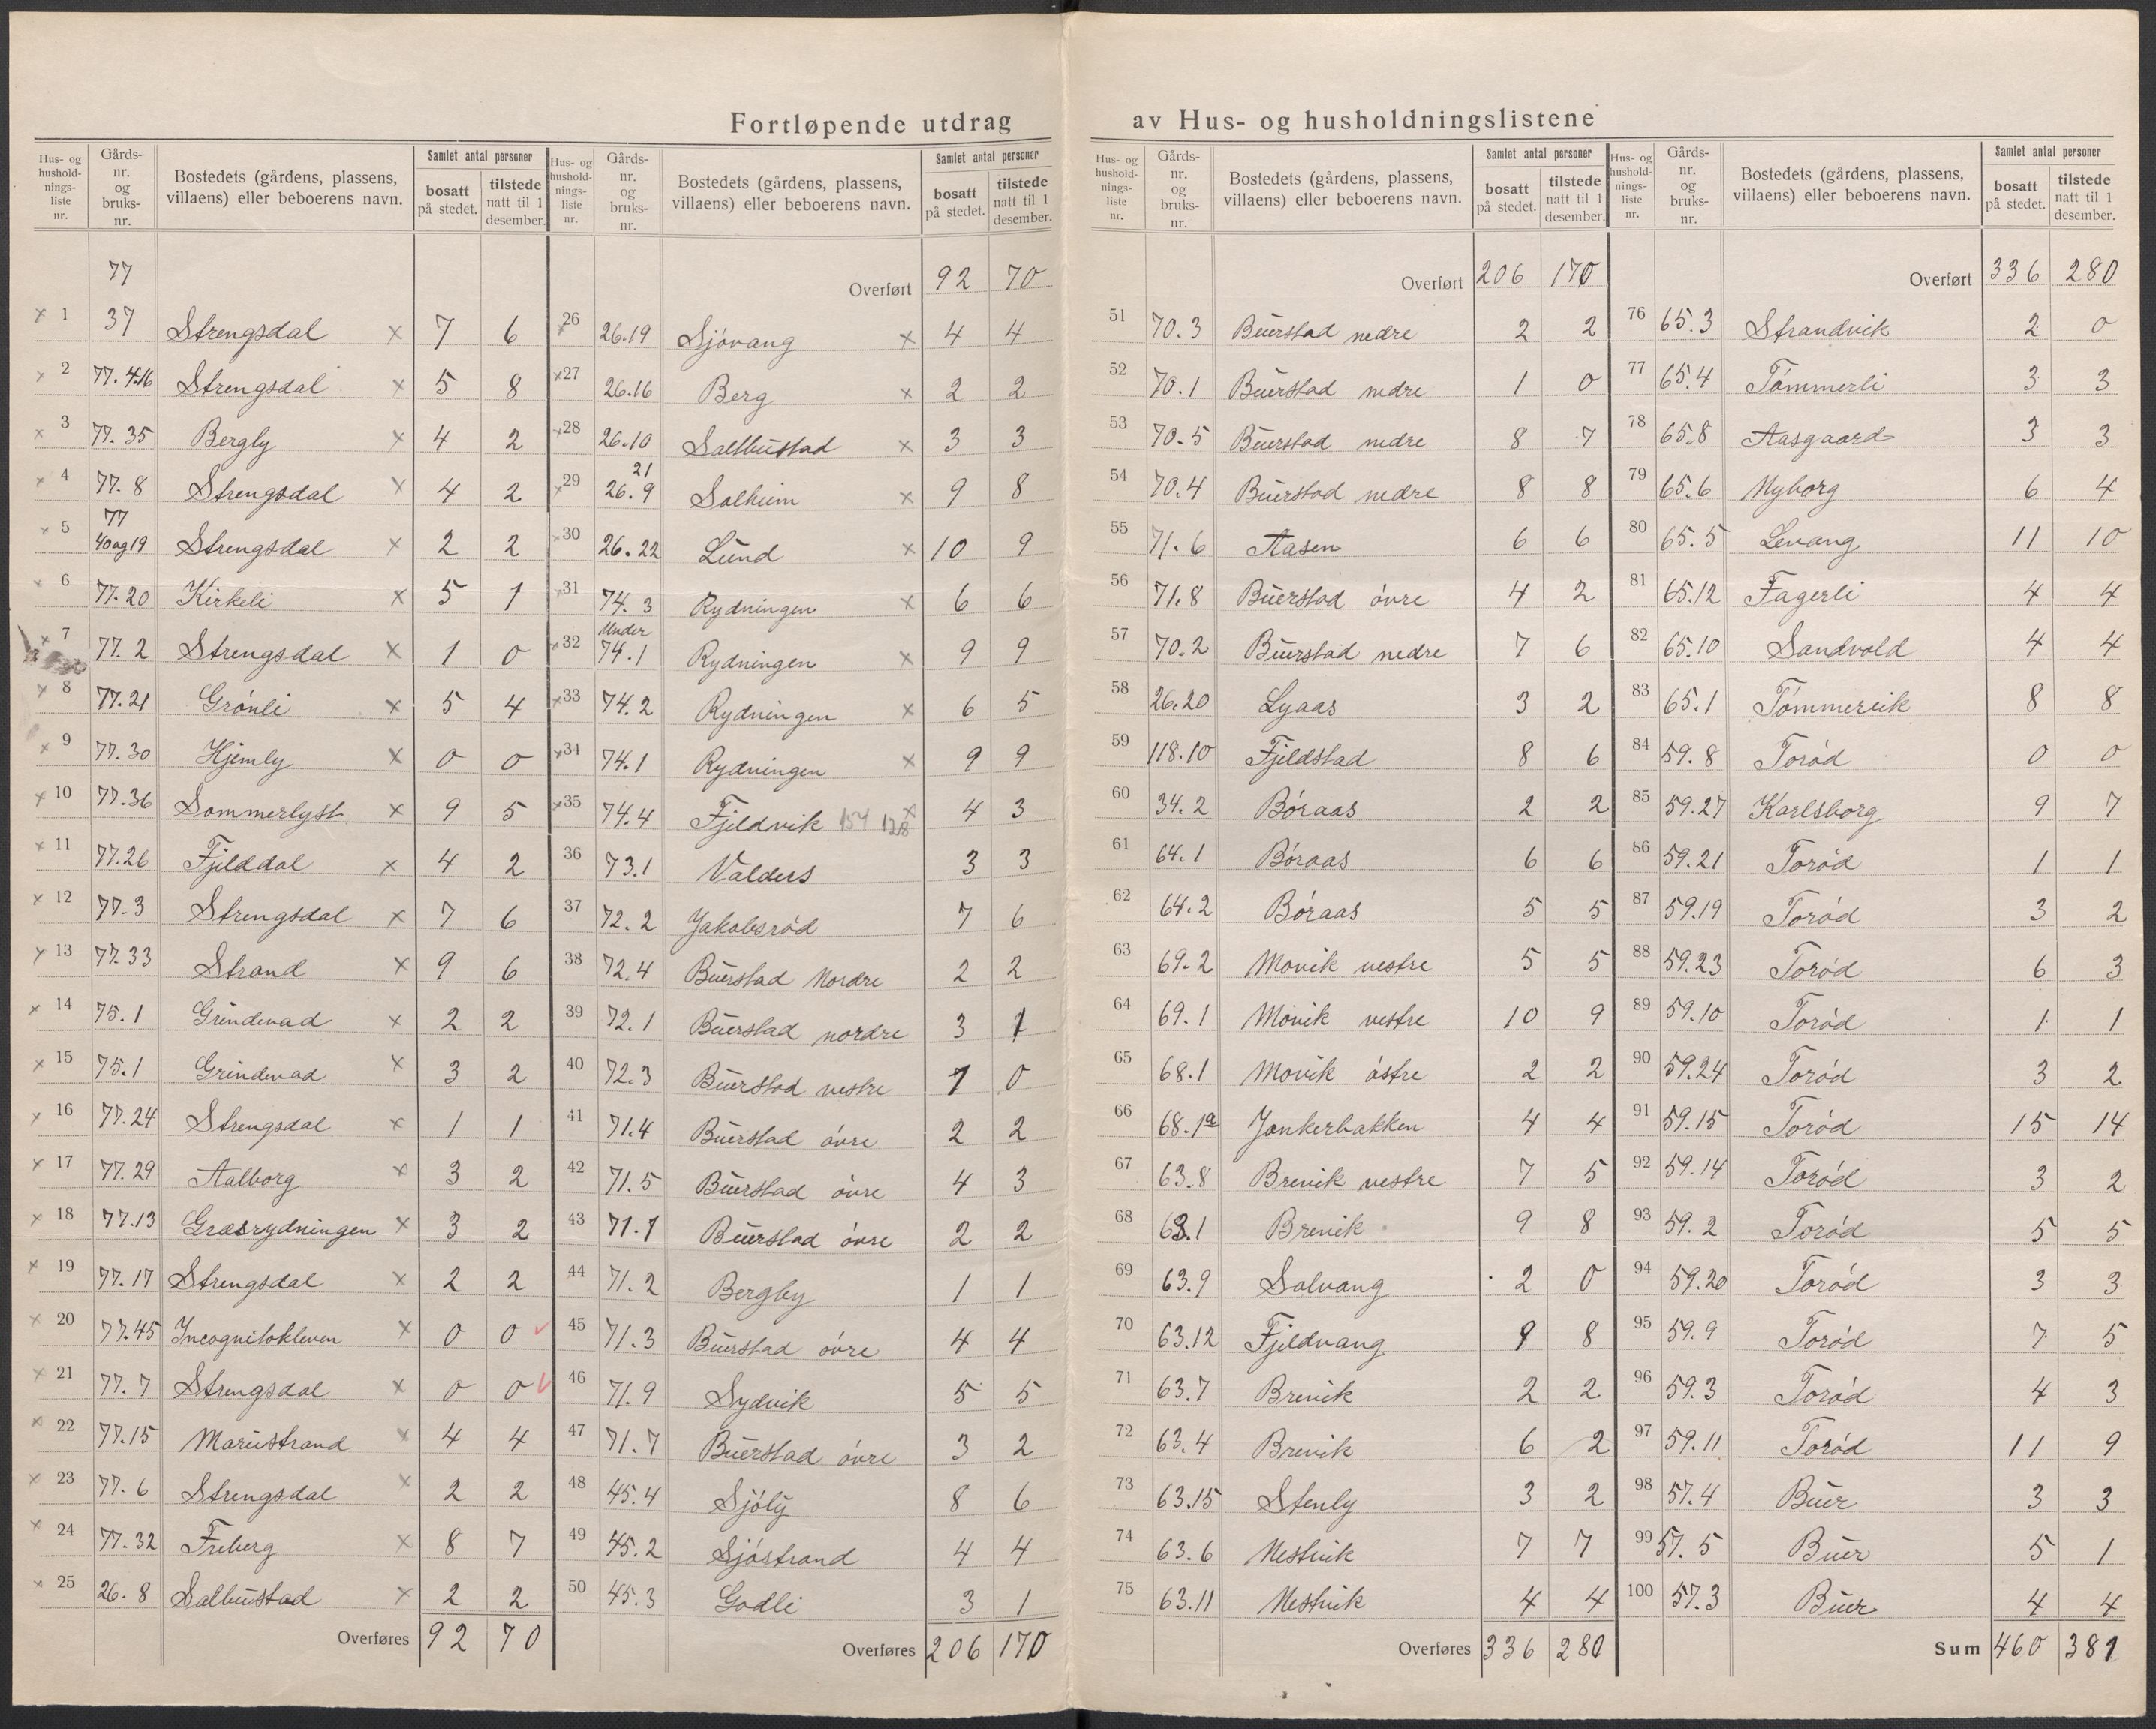 Fortløpende utdrag av Hus- og husholdningslistene
Hus- og husholdnings-liste nr. Gårds-nr. og bruks-nr. Bostedets (gårdens, plassens, villaens) eller beboerens navn. Samlet antal personer bosatt på stedet. tilstede natt til 1 desember.
77
x 1 37 Strengsdal x 7 6
x 2 77.4.16 Strengsdal x 5 8
x 3 77.35 Bergly x 4 2
x 4 77.8 Strengsdal x 4 2
77
x 5 40 og 19 Strengsdal x 2 2
x 6 77.20 Kirkeli x 5 1
x 7 77.2 Strengsdal x 1 0
x 8 77.21 Grönli x 5 4
x 9 77.30 Hjemly x 0 0
x 10 77.36 Sommerlyst x 9 5
x 11 77.26 Fjelddal x 4 2
x 12 77.3 Strengsdal x 7 6
x 13 77.33 Strand x 9 6
x 14 75.1 Grindevad x 2 2
x 15 75.1 Grindevad x 3 2
x 16 77.24 Strengsdal x 1 1
x 17 77.29 Aalborg x 3 2
x 18 77.13 Græsrydningen x 3 2
x 19 77.17 Strengsdal x 2 2
x 20 77.45 Incognitokleven x 0 0
x 21 77.7 Strengsdal x 0 0
x 22 77.15 Mariustrand x 4 4
x 23 77.6 Strengsdal x 2 2
x 24 77.32 Friberg x 8 7
x 25 26.8 Salbustad x 2 2
Overføres 92 70
Hus- og husholdnings-liste nr. Gårds-nr. og bruks-nr. Bostedets (gårdens, plassens, villaens) eller beboerens navn. Samlet antal personer bosatt på stedet. tilstede natt til 1 desember.
Overført 92 70
x 26 26.19 Sjövang x 4 4
x 27 26.16 Berg x 2 2
x 28 26.10 Saltbustad x 3 3
21
x 29 26.9 Solheim x 9 8
x 30 26.22 Lund x 10 9
x 31 74.3 Rydningen x 6 6
Under
x 32 74.1 Rydningen x 9 9
x 33 74.2 Rydningen x 6 5
x 34 74.1 Rydningen x 9 9
x 35 74.4 Fjeldvik 154 128 x 4 3
36 73.1 Valders 3 3
37 72.2 Jakobsröd 7 6
38 72.4 Buerstad Nordre 2 2
39 72.1 Buerstad nordre 3 1
40 72.3 Buerstad vestre 1 0
41 71.4 Buerstad övre 2 2
42 71.5 Buerstad övre 4 3
43 71.1 Buerstad övre 2 2
44 71.2 Bergby 1 1
45 71.3 Buerstad övre 4 4
46 71.9 Sydvik 5 5
47 71.7 Buerstad övre 3 2
48 45.4 Sjöly 8 6
49 45.2 Sjöstrand 4 4
50 45.3 Godli 3 1
Overføres 206 170
Hus- og husholdnings-liste nr. Gårds-nr. og bruks-nr. Bostedets (gårdens, plassens, villaens) eller beboerens navn. Samlet antal personer bosatt på stedet. tilstede natt til 1 desember.
Overført 206 170
51 70.3 Buerstad nedre 2 2
52 70.1 Buerstad nedre 1 0
53 70.5 Buerstad nedre 8 7
54 70.4 Buerstad nedre 8 8
55 71.6 Aasen 6 6
56 71.8 Buerstad övre 4 2
57 70.2 Buerstad nedre 7 6
58 26.20 Lyaas 3 2
59 118.10 Fjeldstad 8 6
60 34.2 Böraas 2 2
61 64.1 Böraas 6 6
62 64.2 Böraas 5 5
63 69.2 Movik vestre 5 5
64 69.1 Movik vestre 10 9
65 68.1 Movik östre 2 2
66 68.1a Jonkerbakken 4 4
67 63.8 Brevik vestre 7 5
68 63.1 Brevik 9 8
69 63.9 Solvang 2 0
70 63.12 Fjeldvang 9 8
71 63.7 Brevik 2 2
72 63.4 Brevik 6 2
73 63.15 Stenly 3 2
74 63.6 Mestvik 7 7
75 63.11 Mestvik 4 4
Overføres 336 280
Hus- og husholdnings-liste nr. Gårds-nr. og bruks-nr. Bostedets (gårdens, plassens, villaens) eller beboerens navn. Samlet antal personer bosatt på stedet. tilstede natt til 1 desember.
Overført 336 280
76 65.3 Strandvik 2 0
77 65.4 Tömmerli 3 3
78 65.8 Aasgaard 3 3
79 65.6 Nyborg 6 4
80 65.5 Levang 11 10
81 65.12 Fagerli 4 4
82 65.10 Sandvold 4 4
83 65.1 Tömmervik 8 8
84 59.8 Toröd 0 0
85 59.27 Karlsborg 9 7
86 59.21 Toröd 1 1
87 59.19 Toröd 3 2
88 59.23 Toröd 6 3
89 59.10 Toröd 1 1
90 59.24 Toröd 3 2
91 59.15 Toröd 15 14
92 59.14 Toröd 3 2
93 59.2 Toröd 5 5
94 59.20 Toröd 3 3
95 59.9 Toröd 7 5
96 59.3 Toröd 4 3
97 59.11 Toröd 11 9
98 57.4 Buer 3 3
99 57.5 Buer 5 1
100 57.3 Buer 4 4
Sum 460 381